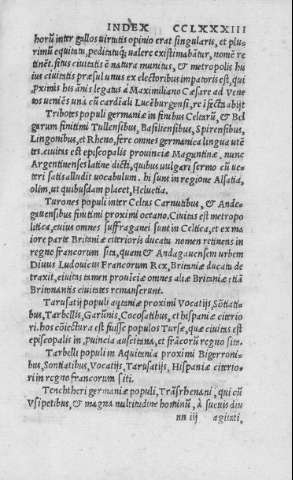 INDEX CCLXXXIII
horũ inter gallos uirtutis opinio erat singularis, et plu
rimũ equitatu, peditatuq; ualere existimabãtur, nomẽ re
tinẽt. situs ciuitatis è natura munitus, & metropolis hu
ius ciuitatis præsul unus ex electoribus imparoris est, qui
pximis his ãnis legatus à Maximiliano Cæsare ad Vene
tos ueniẽs unà cũ cardinali Lucẽburgensi, re ĩfecta abijt
Tribotes populi germaniæ in finibus Celtarũ, & Bel
garum finitimi Tullensibus, Basiliensibus, Spirensibus,
Lingonibus, et Rheno, fere omnes germanica lingua utẽ
tes. ciuitas est episcopalis prouinciæ Maguntinæ, nunc
Argentinenses latine dicti, quibus uulgari sermo cũ ue
teri satis alludit uocabulum. hi sunt in regione Alsatia,
olim, ut quibusdam placet, Heluetia.
Turones populi inter Celtas Carnutibus, & Ande=
gauensibus finitimi proximi oceano. Ciuitas est metropo
litica, cuius omnes suffraganei sunt in Celtica, et ex ma
iore parte Britaniæ citrioris ducatu nomen retinens in
regno francorum sita, quam & Andagauensem urbem
Diuus Ludouicus Francorum Rex, Britaniæ ducatu de
traxit, ciuitas tamen prouiciæ omnes aliæ Britaniæ etiã
Britannantis ciuitates remanserunt.
Tarusatij populi aqtaniæ proximi Vocatijs, Sõtiati=
bus, Tarbellis, Garũnis, Cocosatibus, et hispaniæ citrio
ri. hos cõiectura est fuisse populos Tursæ, quæ ciuitas est
episcopalis in puincia auscitana, et frãcorũ regno sita.
Tarbelli populi in Aquitania proximi Bigerroni=
bus, Sontiatibus, Vocatijs, Tarusatijs, Hispaniæ citrio=
ri in regno francorum siti.
Tenchtheri germaniæ populi, Trãsrhenani, qui cũ
Vsipetibus, & magna multitudine hominũ, à sueuis diu
nn iij agitati,